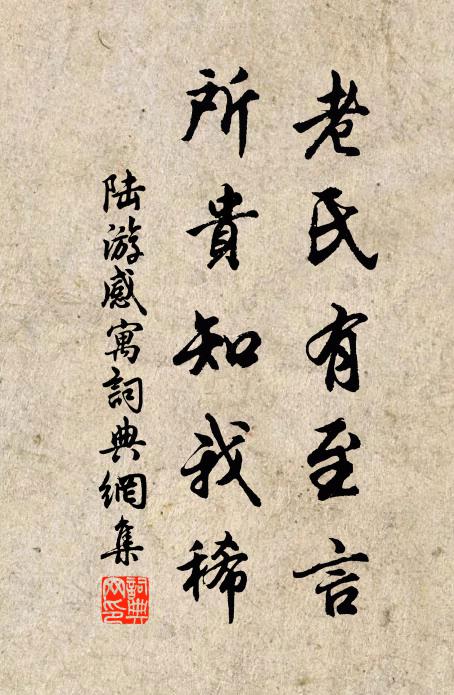 老氏有至言
所貴知我稀
陆游感寓詞典網集
詞典网印